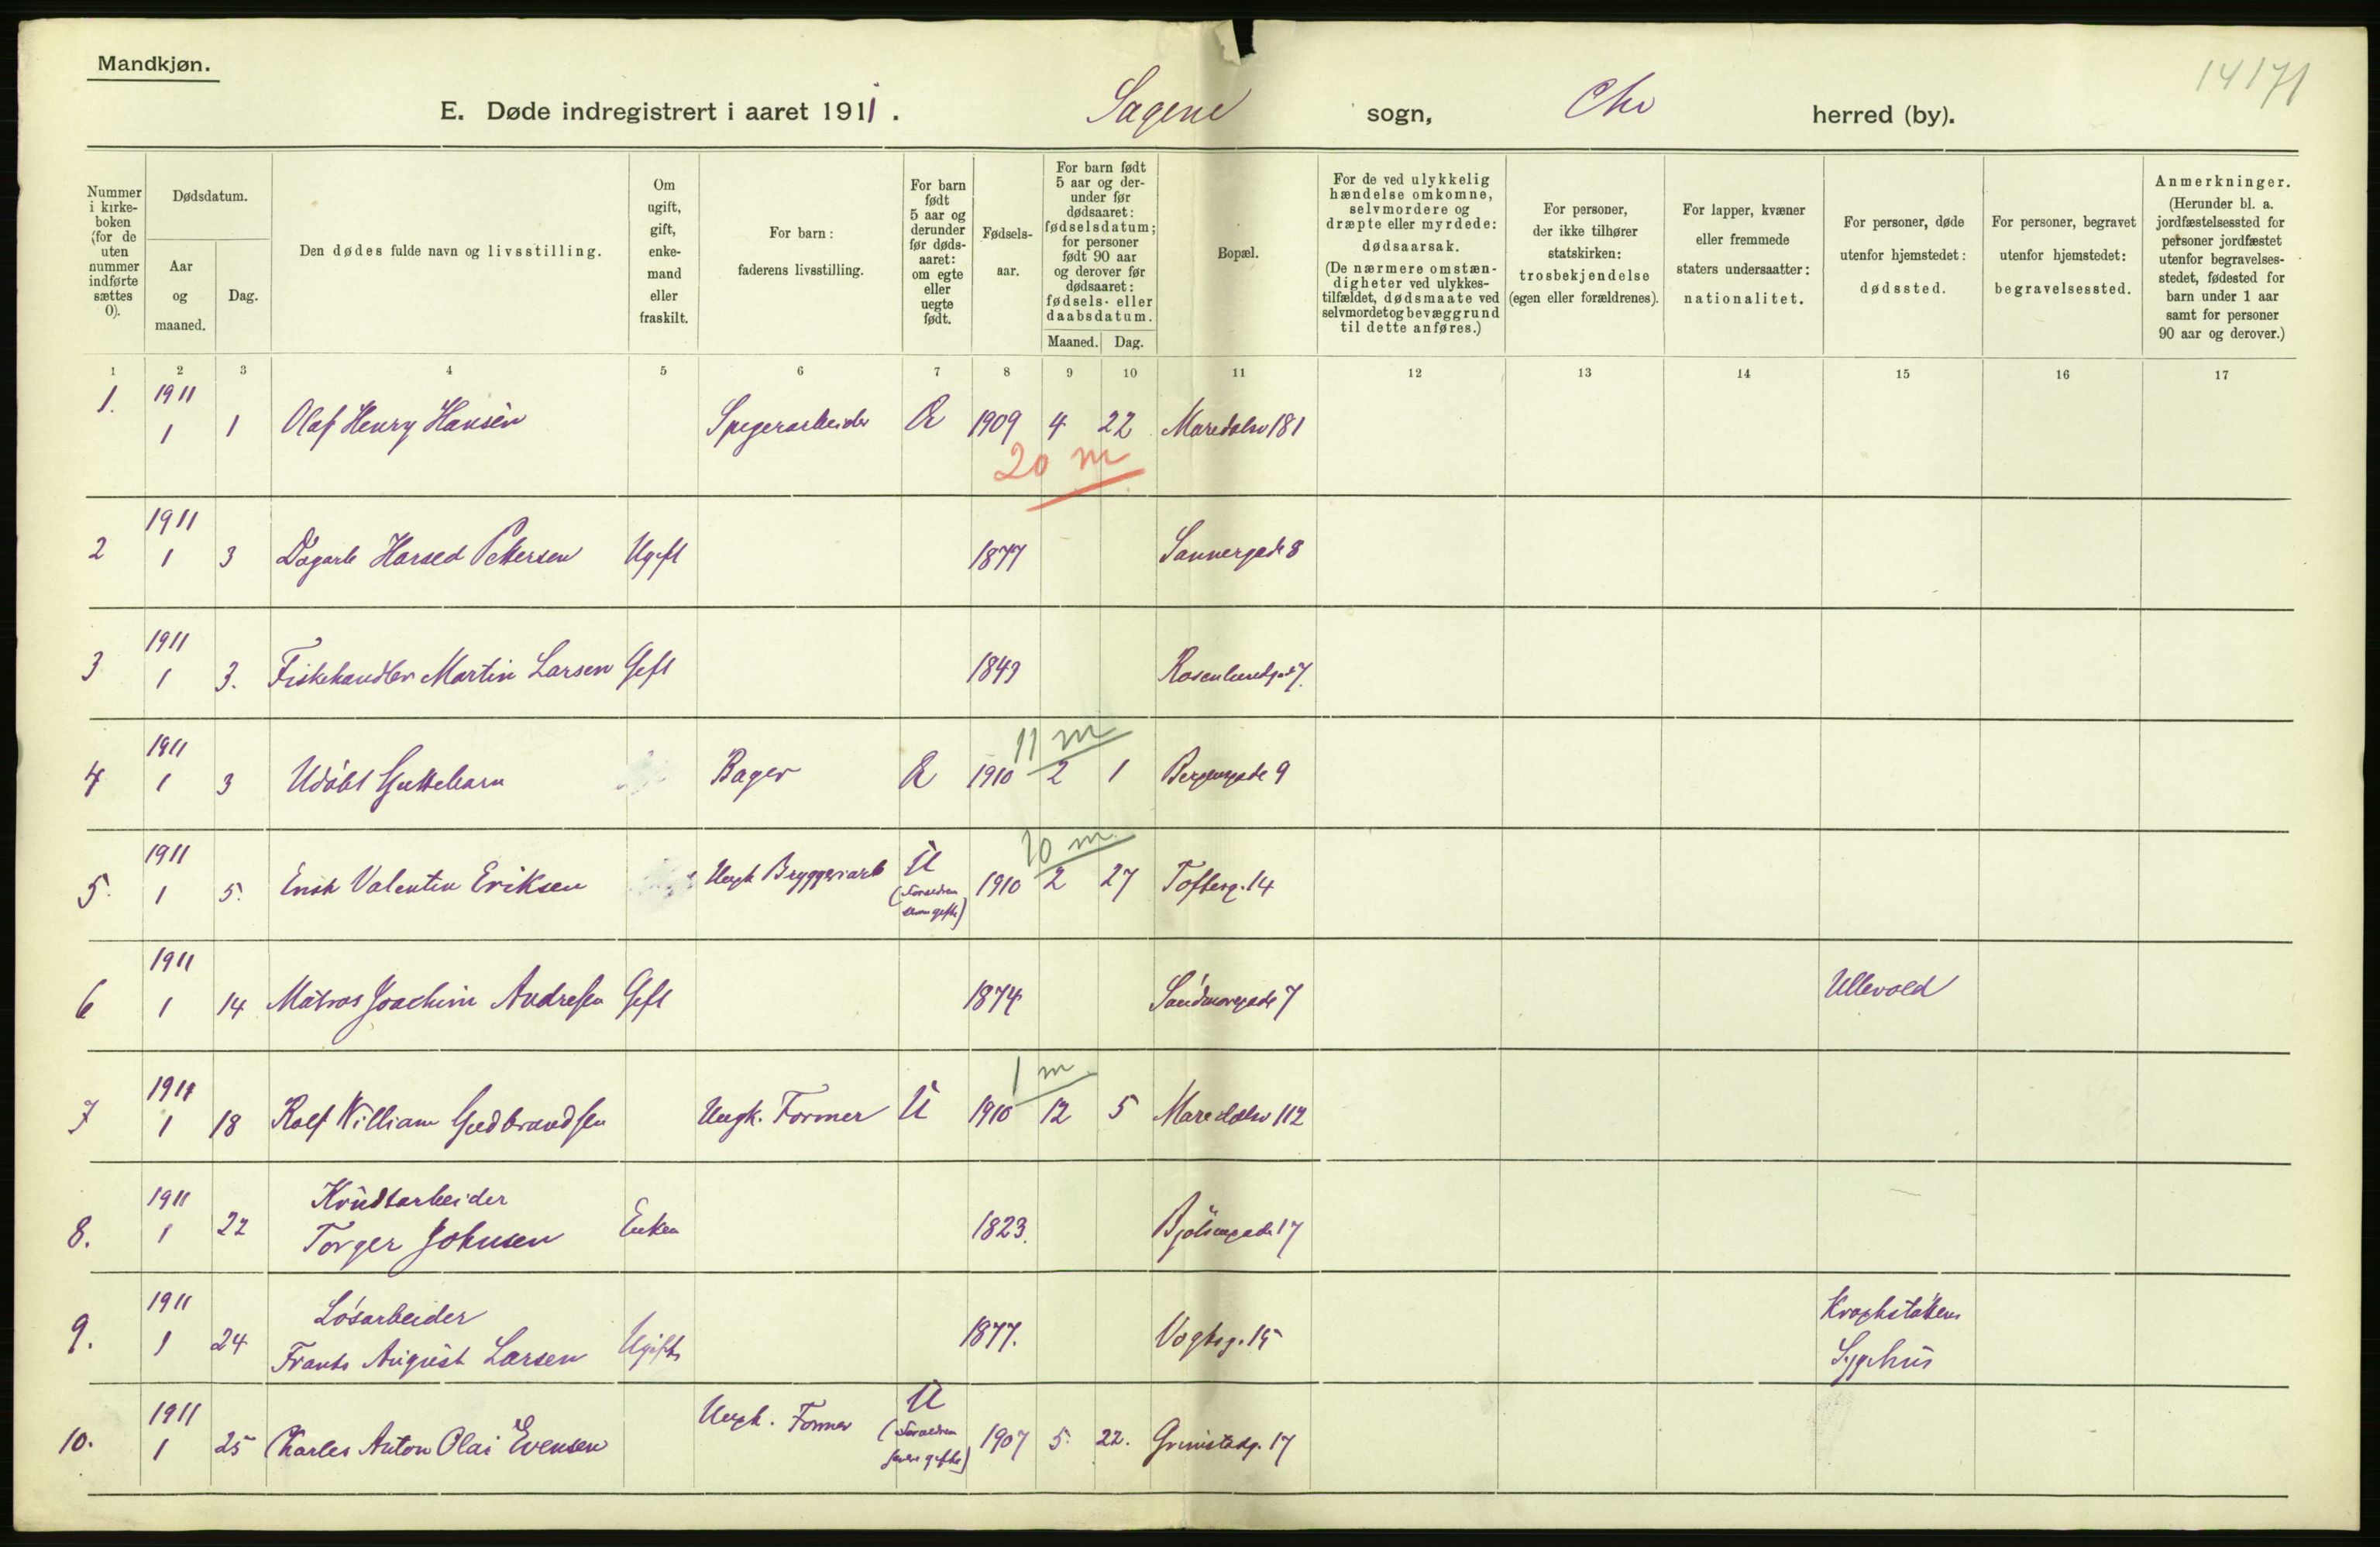 Mandkjøn.
14171
E. Døde indregistrert i aaret 1911. Sagene sogn, Chr herred (by).
Nummer i kirke- boken (for de uten nummer indførte sættes 0).
Dødsdatum.
Aar og maaned.
Dag.
Den dødes fulde navn og livsstilling.
Om ugift, gift, enke- mand eller fraskilt.
For barn: faderens livsstilling.
For barn født 5 aar og derunder før døds- aaret: om egte eller uegte født.
Fødsels- aar.
For barn født 5 aar og der- under før dødsaaret: fødselsdatum; for personer født 90 aar og derover før dødsaaret: fødsels- eller daabsdatum.
Maaned. Dag.
Bopæl.
For de ved ulykkelig hændelse omkomne, selvmordere og dræpte eller myrdede: dødsaarsak. (De nærmere omstæn- digheter ved ulykkes- tilfældet, dødsmaate ved selvmordet og bevæggrund til dette anføres.)
For personer, der ikke tilhører statskirken: trosbekjendelse (egen eller forældrenes).
For lapper, kvæner eller fremmede staters undersaatter: nationalitet.
For personer, døde utenfor hjemstedet: dødssted.
For personer, begravet utenfor hjemstedet: begravelsessted.
Anmerkninger. (Herunder bl. a. jordfæstelsessted for personer jordfæstet utenfor begravelses- stedet, fødested for barn under 1 aar samt for personer 90 aar og derover.)
1 2 3 4 5 6 7 8 9 10 11 12 13 14 15 16 17
1. 1911
1 1 Olaf Henry Hansen Spigerarbeider Æ 1909 4 22 Maredalsv 181
20 m
1911
2 1 3 Dagarb Harald Pettersen Ugift 1877 Sannergade 8
1911
3 1 3. Fiskehandler Martin Larsen Gift 1849 Rosenlundgade 7.
1911 11 m
4 1 3 Udøbt Guttebarn Bager Æ 1910 2 1 Bergensgade 9
1911 10 m
5. 1 5. Erich Valentin Eriksen Ungk Bryggeriarb U 1910 2 27 Tofteg. 14
(Forældrene gifte)
1911
6 1 14 Matros Joachim Andresen Gift 1874 Søndmøregade 7 Ullevold
1911 1 m
7 1 18 Rolf William Gudbrandsen Ungk. Former U 1910 12 5 Maredalsv 112
1911 Krudtarbeider
8. 1 22 Torger Johnsen Enkem 1823. Bjølsengade 17
1911 Løsarbeider Krohgstøttens
9. 1 24 Frants August Larsen Ugift 1877. Vogtsg. 15 Sygehus
1911 Ungk. Former U
10. 1 25 Charles Anton Olai Evensen (Forældrene senere gifte) 1907 5. 22. Grimstadg. 17